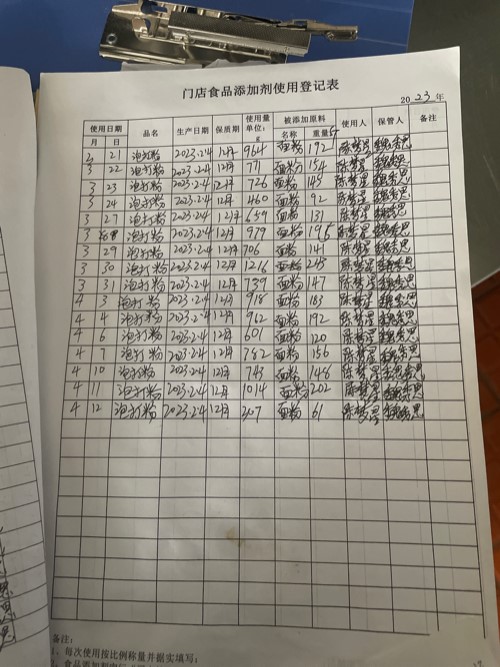 门店食品添加剂使用登记表
2023年
使用日期 品名 生产日期 保质期 使用量单位:g 被添加原料 使用人 保管人 备注
月 日 名称 重量
3 21 泡打粉 2023.2.4 12月 964 面粉 192 陈梦星 魏秀思
3 22 泡打粉 2023.2.4 12月 771 面粉 154 陈梦星 魏秀思
3 23 泡打粉 2023.2.4 12月 726 面粉 145 陈梦星 魏秀思
3 24 泡打粉 2023.2.4 12月 460 面粉 92 陈梦星 魏秀思
3 27 泡打粉 2023.2.4 12月 659 面粉 131 陈梦星 魏秀思
3 泡打粉 2023.2.4 12月 979 面粉 195 陈梦星 魏秀思
3 29 泡打粉 2023.2.4 12月 706 面粉 141 陈梦星 魏秀思
3 30 泡打粉 2023.2.4 12月 1216 面粉 243 陈梦星 魏秀思
3 31 泡打粉 2023.2.4 12月 739 面粉 147 陈梦星 魏秀思
4 3 泡打粉 2023.2.4 12月 918 面粉 183 陈梦星 魏秀思
4 4 泡打粉 2023.2.4 12月 962 面粉 192 陈梦星 魏秀思
4 6 泡打粉 2023.2.4 12月 601 面粉 120 陈梦星 魏秀思
4 7 泡打粉 2023.2.4 12月 782 面粉 156 陈梦星 魏秀思
4 10 泡打粉 2023.2.4 12月 743 面粉 148 陈梦星 魏秀思
4 11 泡打粉 2023.2.4 12月 1014 面粉 202 陈梦星 魏秀思
4 12 泡打粉 2023.2.4 12月 307 面粉 61 陈梦星 魏秀思
备注:
、每次使用按比例称量并据实填写;